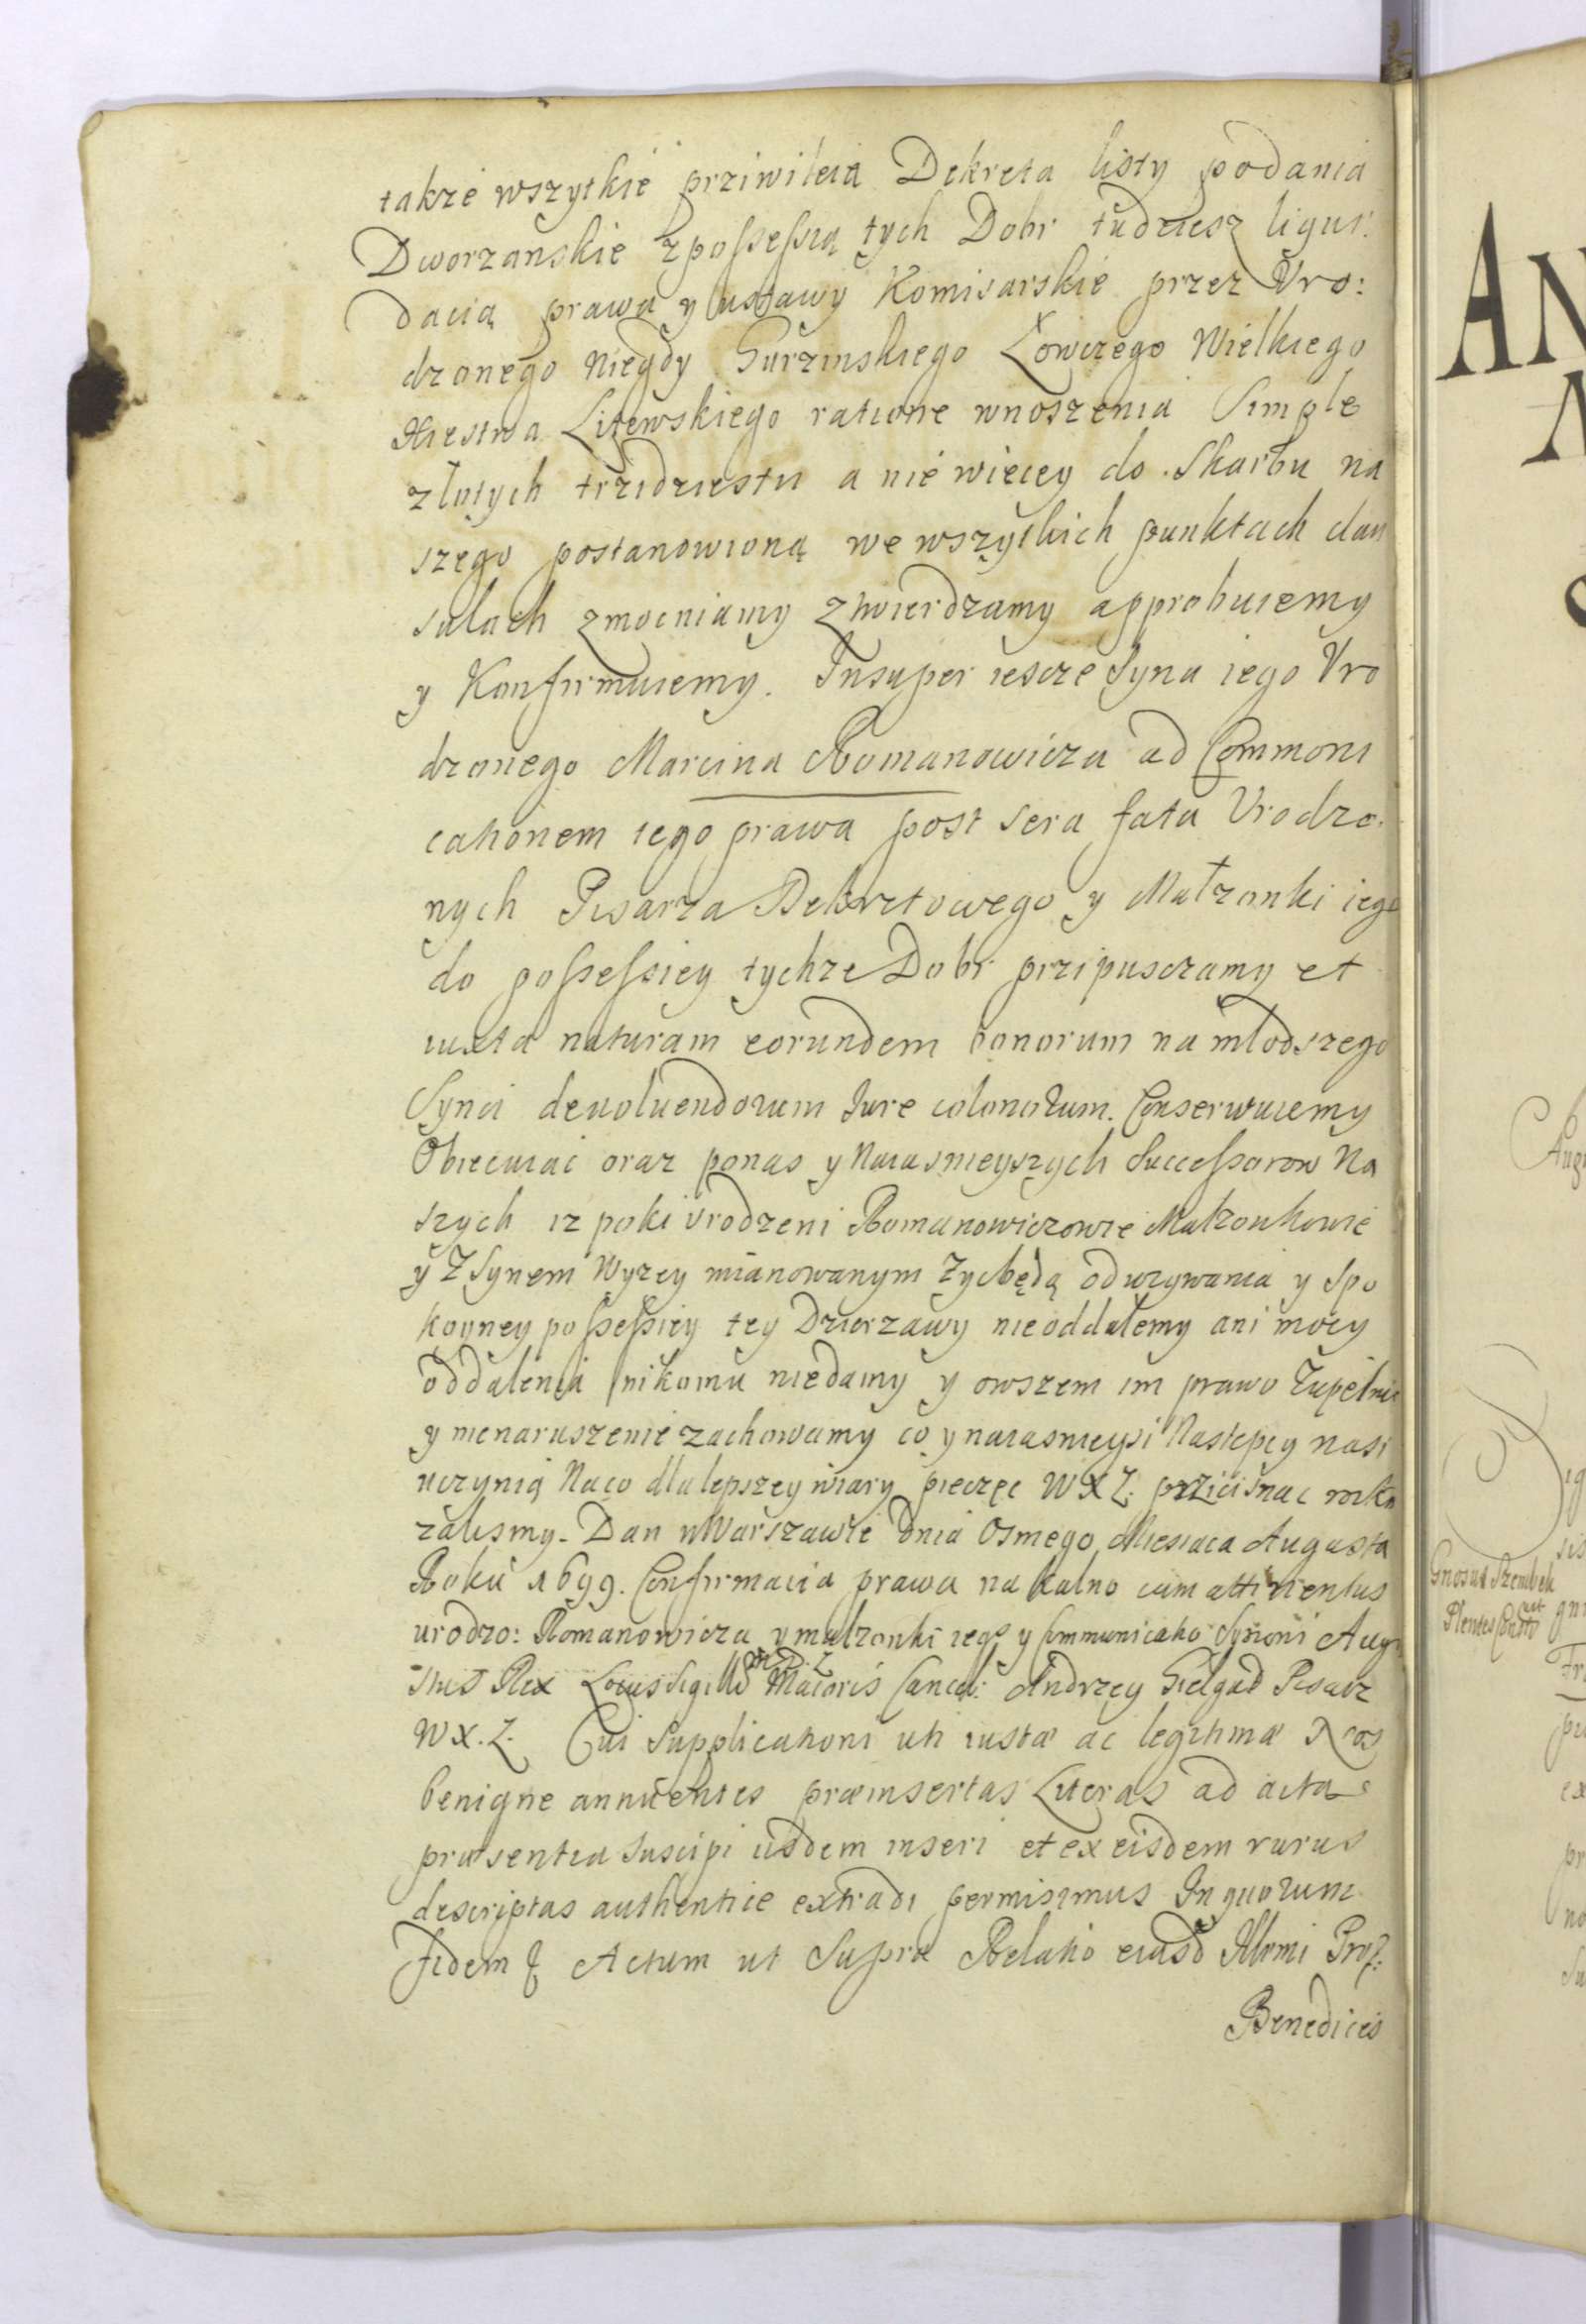 takze wszytkie priwileia Dekreta listy podania
Dworzanskie z possessią tych Dobr tudziesz liqui:
dacią prawa y ustawy Komisarskie przez Vro:
dzonego niegdy Gurzinskiego Łowczego Wielkiego
Xiestwa Litewskiego ratione wnoszenia Simple
złotych trzidziestu a nie wiecey do Skarbu na
szego postanowioną we wszytkich punktach clau
sulach zmocniamy ztwierdzamy approbuiemy
y Konfirmuiemy. Insuper iescze Syna iego Vro
dzonego Marcina Romanowicza ad Commoni
cationem iego prawa post sera fata Vrodzo.
nych Pisarza Dekretowego y Małzonki iego
do possessiey tychze Dobr przipusczamy et
iuxta naturam eorundem bonorum na młodszego
Syna devoluendorum Iure colonorum. Conserwuiemy
Obiecuiac oraz ponas y Naiasnieyszych Successorow Na
szych iz poki vrodzeni Romanowiczowie Małzonkowie
y Z Synem Wyzey mianowanym Zycbędą oduzywania y Spo
koyney possessiey tey Dzierzawy nieoddalemy ani mocy
oddalenia nikomu niedamy y owszem im prawo Zupełnie
y nienaruszenie zachowamy co y naiasnieysi Nastepcy nasi
uczynią Naco dla lepszey wiary pieczęc W X L. prziicisnac roska
zalismy. Dan w Warszawie Dnia Osmego Miesiaca Augusta
Roku 1699. Confirmacia prawa na Kalno cum attinentiis
urodzo: Romanowicza y małzonki iego y Communicatio Synowi Augu
stus Rex Locus Sigilli M. D. L. Maioris Cancel: Andrzey Gielgud Pisarz
W X. L. Cui Supplicationi uti iustæ ac legitimæ Nos
benigne annuentes præinsertas Literas ad acta
præsentia suscipi iisdem inseri et ex eisdem rursus
descriptas authentice extradi permisimus In quorum
fidem & Actum ut Supra Relatio eiusd Illrmi Proz:
Benedictis
AN
Gnosus Szembek